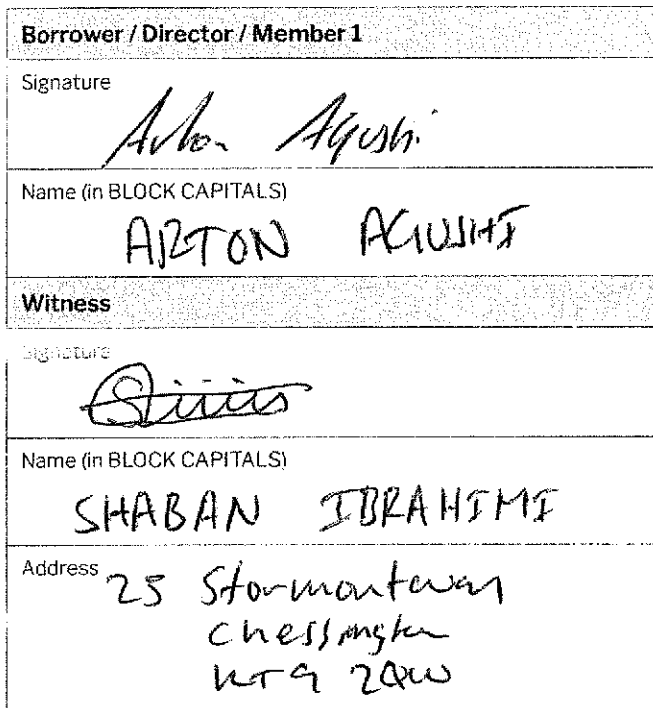 Borrower / Director / Member 1
Signature
Arton Agushi
Name (in BLOCK CAPITALS)
ARTON AGUSHI
Witness
Signature
Name (in BLOCK CAPITALS)
SHABAN IBRAHIMI
Address 25 Stormont way
Chessington
KT9 2QW